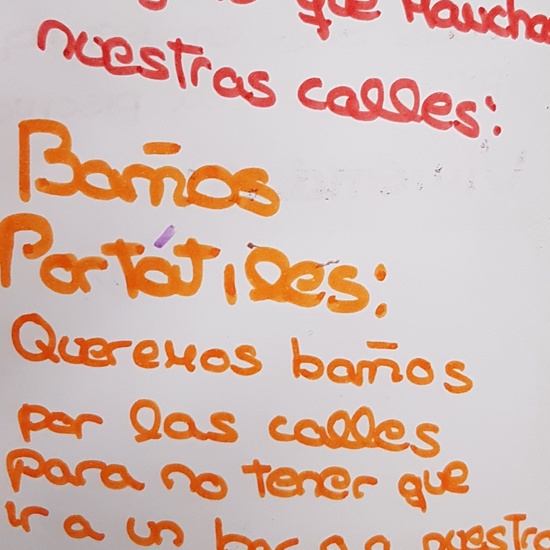 que Manchan
nuestras calles:
Baños
Portátiles:
Queremos baños
por las calles
para no tener que
ir a un bar o a nuestra